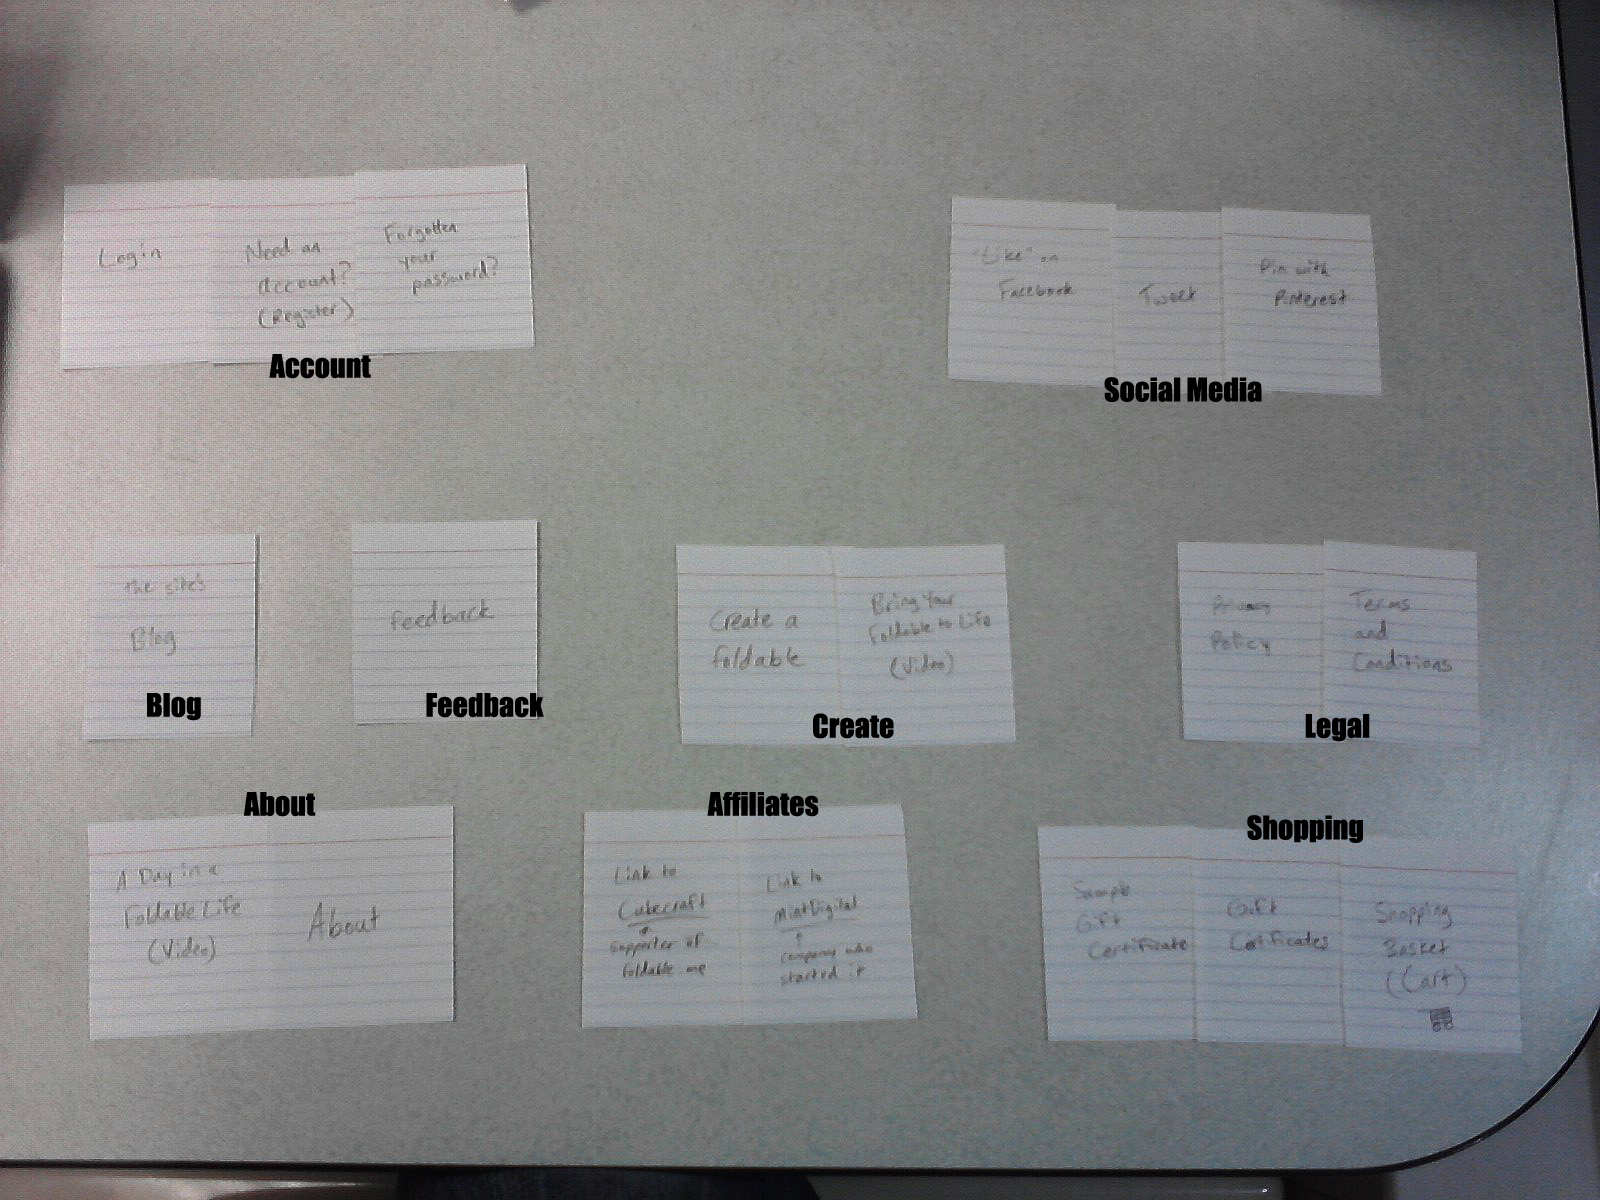 Login
Need an
account?
(Register)
Forgotten
your
password?
Account
"Like" on
Facebook
Tweet
Pin with
Pinterest
Social Media
the site's
Blog
Blog
feedback
Feedback
Create a
foldable
Bring Your
Foldable to Life
(Video)
Create
Privacy
Policy
Terms
and
Conditions
Legal
About
A Day in a
Foldable Life
(Video)
About
Affiliates
Link to
Cubecraft
supporter of
foldable me
Link to
MintDigital
company who
started it
Shopping
Sample
Gift
Certificate
Gift
Certificates
Shopping
Basket
(Cart)